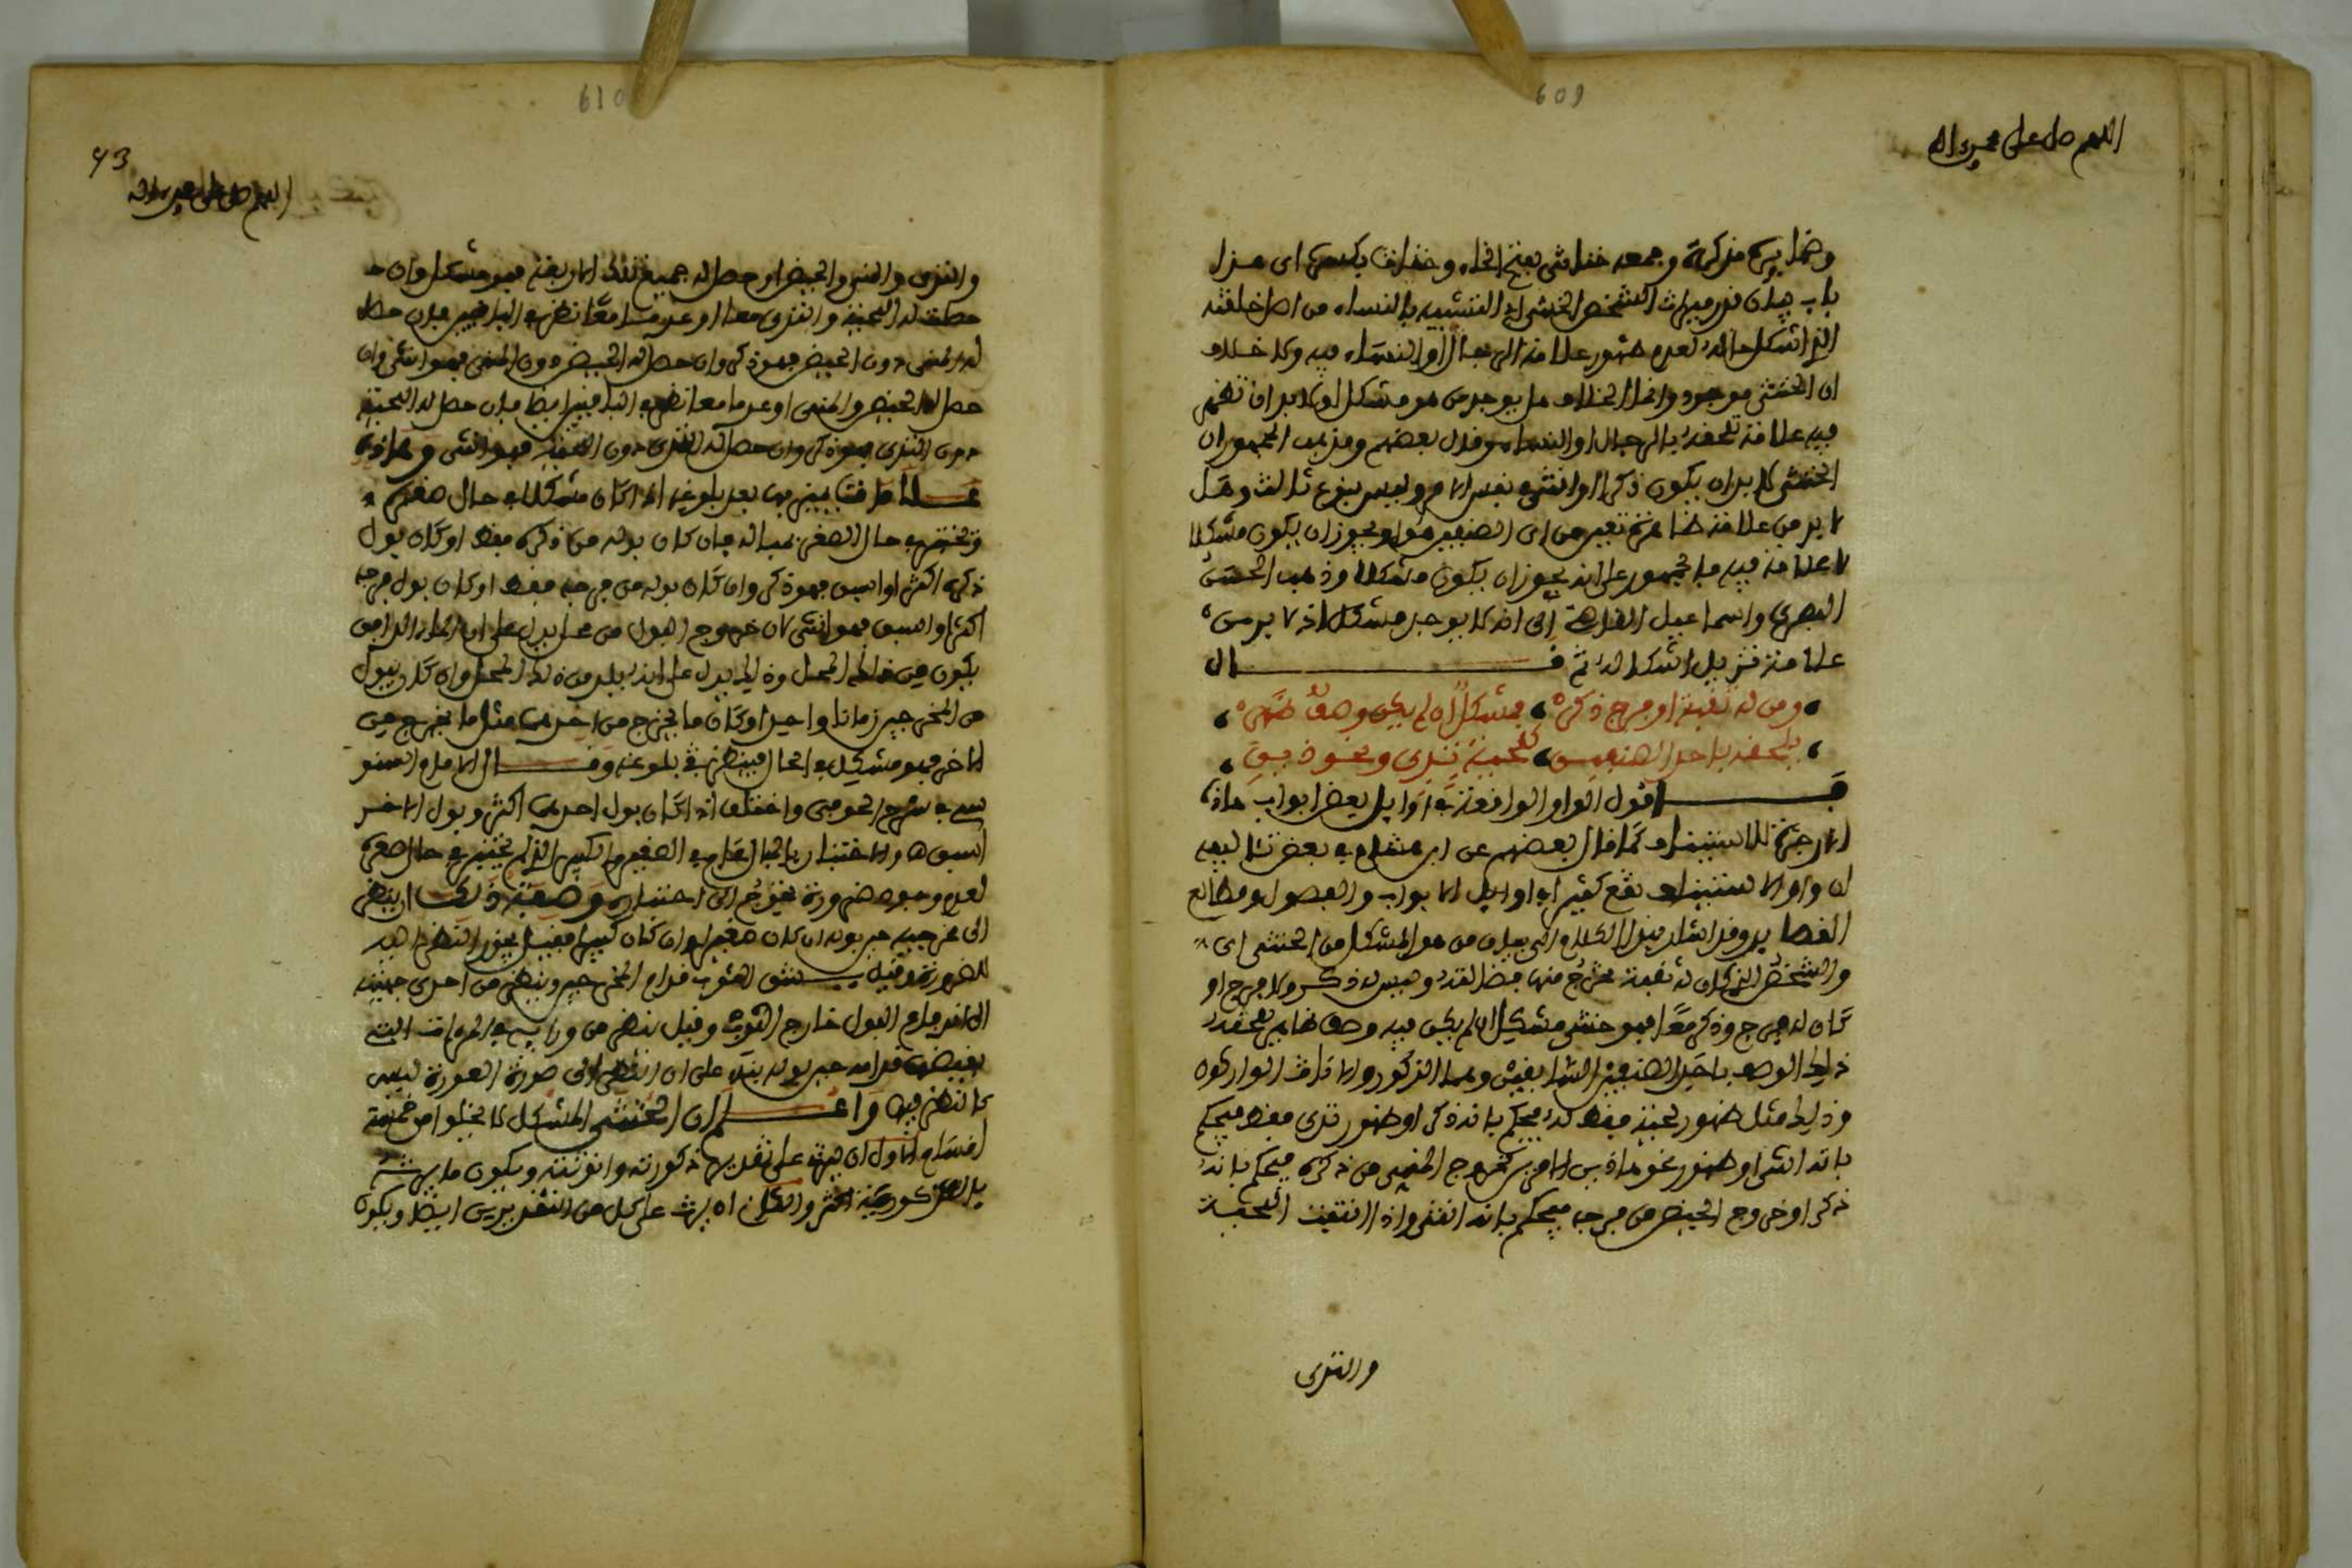 609
اللهم صل على محمد وآله
وضمايره مذكرة وجمعه خناثى بفتح الخاء وخناث بكسرها اى هذا
باب بيان قدر ميراث الشخص الخنثى اى المتشبه بالنساء من اصل خلقته
الذى اشكل حاله لعدم ظهور علامة الرجال او النساء فيه ولا خلاف
ان الخنثى موجود وانما الخلاف هل يوجد من هو مشكل او لا بد ان تظهر
فيه علامة تلحقه بالرجال او النساء وقال بعضهم ومذهب الجمهور ان
الخنثى لا بد ان يكون ذكرا او انثى فى نفس الامر وليس بنوع ثالث وهل
لا بد من علامة ظاهرة تعين من اى الصنفين هو او يجوز ان يكون مشكلا
لا علامة فيه فالجمهور على انه يجوز ان يكون مشكلا وذهب الحسن
البصرى واسماعيل القاضى الى انه لا يوجد مشكل اذ لا بد من
علامة تزيل اشكاله ثم قال
ومن له ثقبة او فرج ذكره فمشكل ان لم يكن وصف ظهره
يلحقه باحد الصنفين كلحية ثدى ونحو ذين
قـ اقول الواو الواقعة فى اوايل بعض ابواب هاذه
الارجوزة للاستيناف كما قال بعضهم عن ابن هشام فى بعض تئاليفه
ان واو الاستيناف تقع كثيرا فى اوايل الابواب والفصول ومطالع
القصايد وقد اشار بهذا الكلام الى بيان من هو المشكل من الخنثى اى
والشخص الذى كان له ثقبة تخرج منها فضالته وليس له ذكر ولا فرج او
كان له فرج وذكر معا فهو خنثى مشكل ان لم يكن فيه وصف ظاهر يلحقه
ذلك الوصف باحد الصنفين السابقين وهما الذكور والاناث الواركون
وذلك مثل ظهور لحية فقط له فيحكم بانه ذكر او ظهور ثدى فقط فيحكم
بانه انثى او ظهور نحو هاذين الامرين كخروج المنى من ذكره فيحكم بانه
ذكر او خروج الحيض من فرجه فيحكم بانه انثى واذا انتفت اللحية
والثدى
610
43
اللهم صل على محمد وآله
والثدى والمنى والحيض او حصل له جميع تلك الاربعة فهو مشكل وان
حصلت له اللحية والثدى معا او عدمتا معا نظر فى الباقيين فان حصل
له المنى دون الحيض فهو ذكر وان حصل له الحيض دون المنى فهو انثى وان
حصل له الحيض والمنى او عدما معا نظر فى الباقيين ايضا فان حصل له اللحية
دون الثدى فهو ذكر وان حصل له الثدى دون اللحية فهو انثى وهاذه
علامات يميز بها بعد بلوغه اذا كان مشكلا فى حال صغره
وتختبر فى حال الصغر بمباله فان كان بوله من ذكره فقط او كان بول
ذكره اكثر او اسبق فهو ذكر وان كان بوله من فرجه فقط او كان بول فرجه
اكثر او اسبق فهو انثى لان خروج البول من محل يدل على ان الماء الدافق
يكون من ذلك المحل وذلك يدل على انه يلد من ذلك المحل وان كان يبول
من المخرجين زمانا واحدا وكان ما يخرج من احدهما مثل ما يخرج من
الاخر فهو مشكل فى الحال فينظر فى بلوغه وقال الامام السنو
سى فى شرح الحوفى واختلف اذا كان بول احدهما اكثر وبول الاخر
اسبق هـ والاختبار بالمبال عام فى الصغير والكبير الذى لم يختبر فى حال صغره
لعدم وجود ضرورة تحوج الى اختباره وصفة ذلك ان ينظر
الى مخرجيه حين بوله ان كان صغيرا وان كان كبيرا فقيل يجوز النظر اليه
للضرورة وقيل يستتر الثوب قدام المخرجين وينظر من احدى جهتيه
الى اندفاع البول خارج الثوب وقيل ننظر من ورايه فى المراة التى
نضعها قدامه حين بوله بناء على ان النظر الى صورة العورة ليس
كالنظر فيها واعلم ان الخنثى المشكل لا يخلوا من خمسة
اقسام الاول ان يرث على تقدير ذكورته وانوثته ويكون ما يرثه
بالذكورية اكثر والثانى ان يرث على كل من التقديرين ايضا ويكون